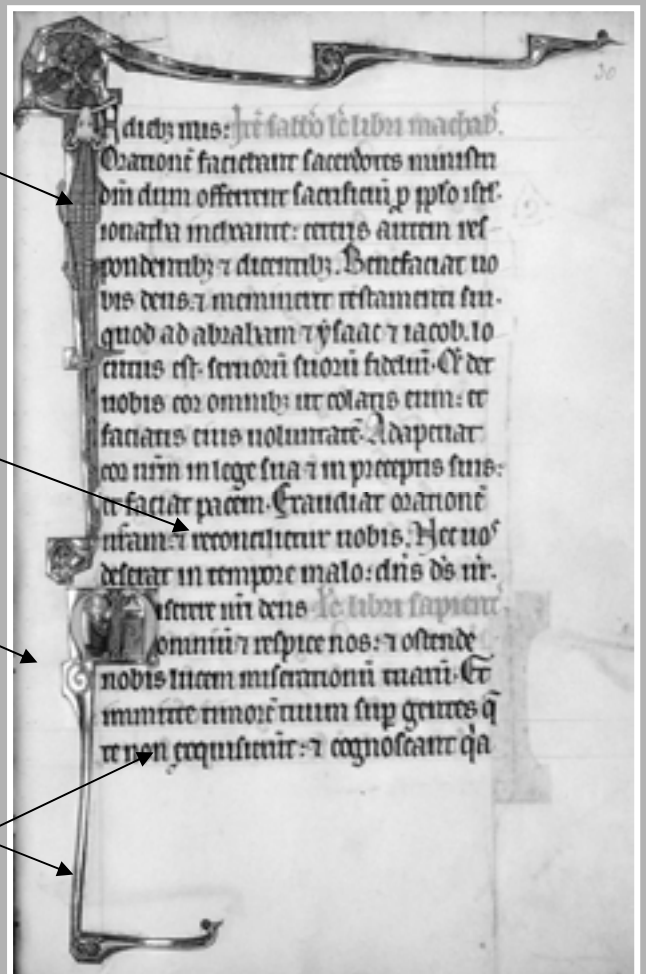 30
A dieb; nris: Itē sabbō lc̄ libri machab.
Orationē faciebant sacerdotes ministri
dn̄i dum offerrent sacrificiū ꝑ pp̄lo isrl̄.
ionatha inchoante: ceteris autem res
pondentib; ⁊ dicentib;. Benefaciat uo
bis deus: ⁊ meminerit testamenti sui.
quod ad abraham ⁊ ysaac ⁊ iacob. lo
cutus est. seruorū suorū fideliū. Et det
nobis cor omnib; ut colatis eum: et
faciatis eius uoluntatē. Adaperiat
cor nr̄m in lege sua ⁊ in preceptis suis:
et faciat pacem. Exaudiat orationē
nr̄am: ⁊ reconcilietur nobis. Nec uos
deserat in tempore malo: dn̄s ds̄ nr̄.
Miserere nr̄i deus lc̄ libri sapient
omniū ⁊ respice nos: ⁊ ostende
nobis lucem miserationū tuarū. Et
immitte timorē tuum suꝑ gentes q̄
te non exquisierūt: ⁊ cognoscant q̄a